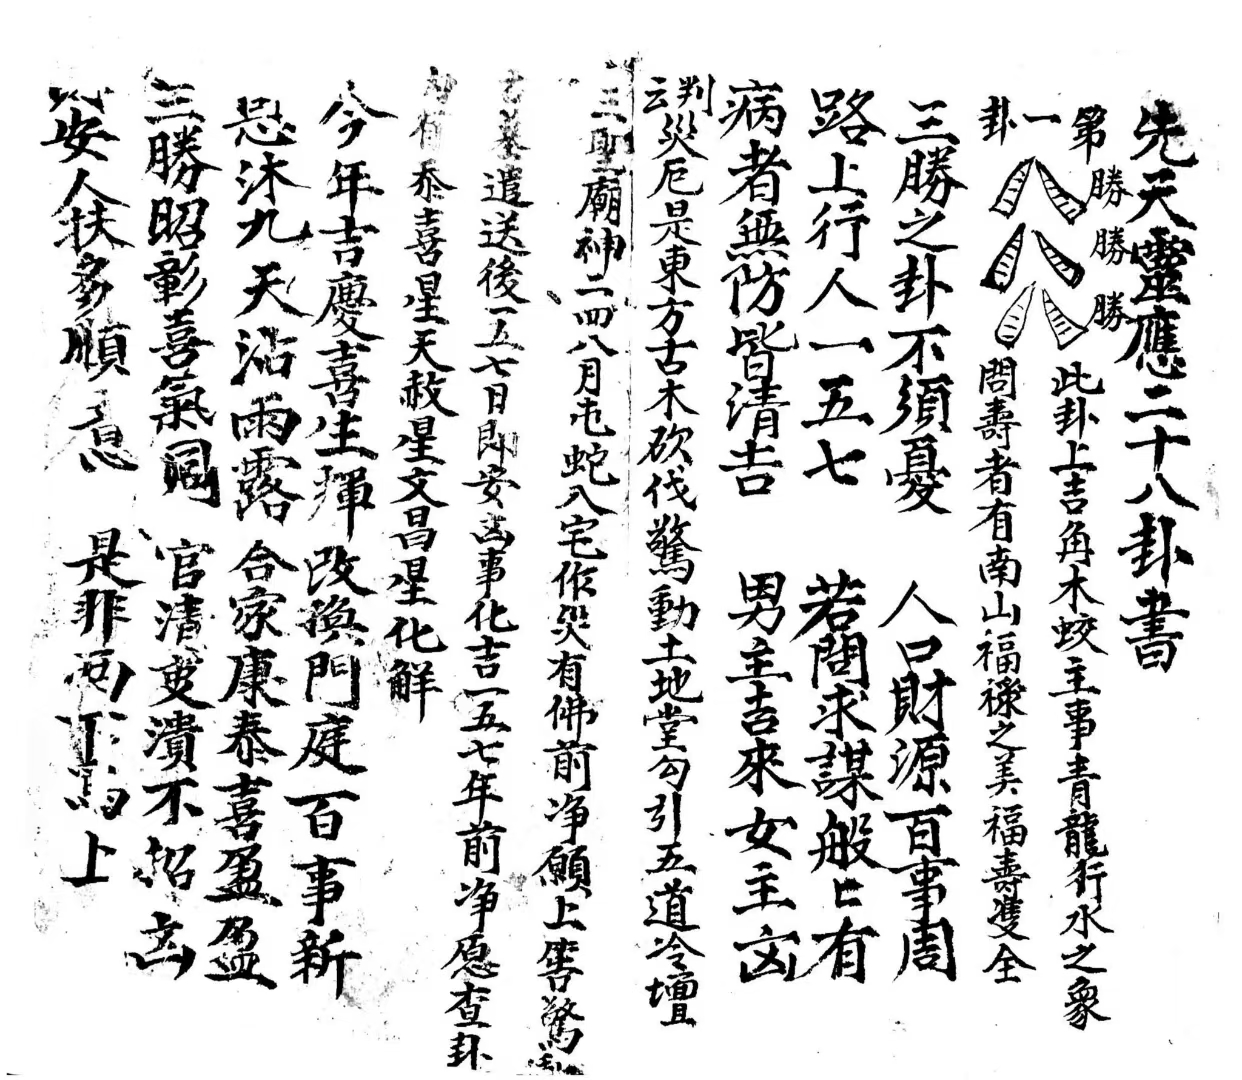 先天靈應二十八卦書
第一卦
勝勝勝
此卦上吉角木蛟主事青龍行水之象
問壽者有南山福祿之美福壽雙全
三勝之卦不須憂 人口財源百事周
路上行人一五七 若問求謀般〻有
病者無防皆清吉 男主吉來女主凶
判云災厄是東方古木砍伐驚動土地堂勾引五道冷壇
三聖廟神二四八月屯蛇入宅作災有佛前净願上害驚
古墓遣送後一五七日即安凶事化吉一五七年前净愿查卦
泰喜星天赦星文昌星化解
今年吉慶喜生輝 改換門庭百事新
恩沐九天沾雨露 合家康泰喜盈盈
三勝昭彰喜氣同 官清吏潰不招凶
安人扶多順意 是非兩下馬上